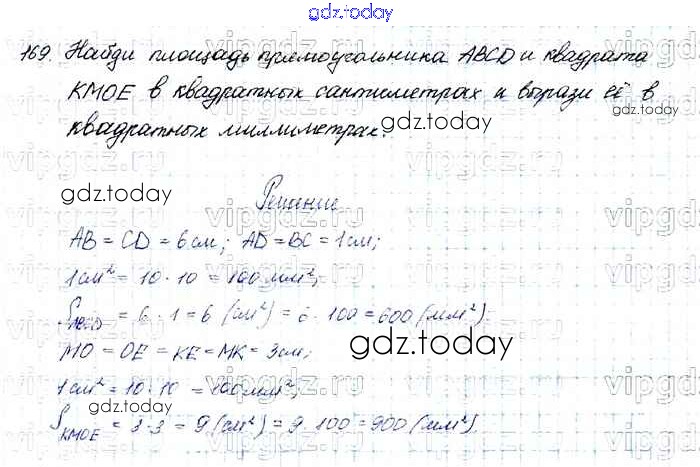 gdz.today
169. Найди площадь прямоугольника ABCD и квадрата
KMOE в квадратных сантиметрах и вырази её в
квадратных миллиметрах.
gdz.today
gdz.today
Решение
AB = CD = 6 см; AD = BC = 1 см;
1 см² = 10 · 10 = 100 мм²;
S ABCD = 6 · 1 = 6 (см²) = 6 · 100 = 600 (мм²)
MO = OE = KE = MK = 3 см;
gdz.today
1 см² = 10 · 10 = 100 мм²;
gdz.today
gdz.today
S KMOE = 3 · 3 = 9 (см²) = 9 · 100 = 900 (мм²).